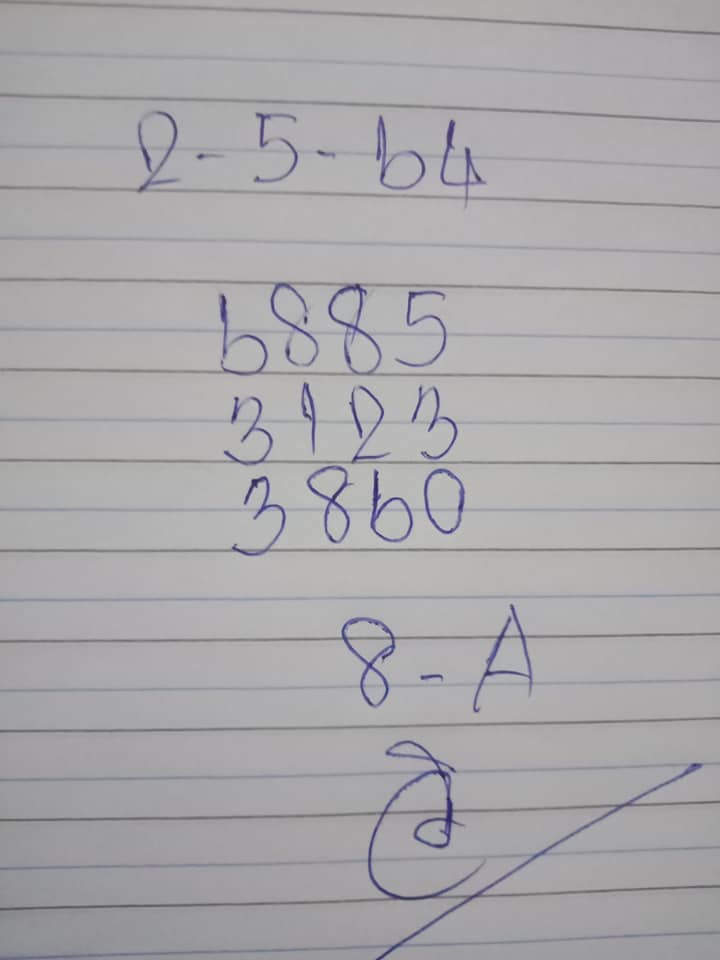 2-5-64
6885
3123
3860
8-A